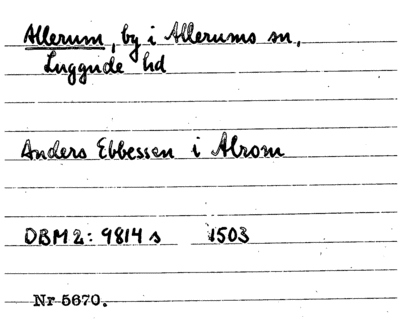 Allerum, by i Allerums sn,
Luggude hd
Anders Ebbessen i Alrom
DBM2: 9814 s 1503
Nr 5670.